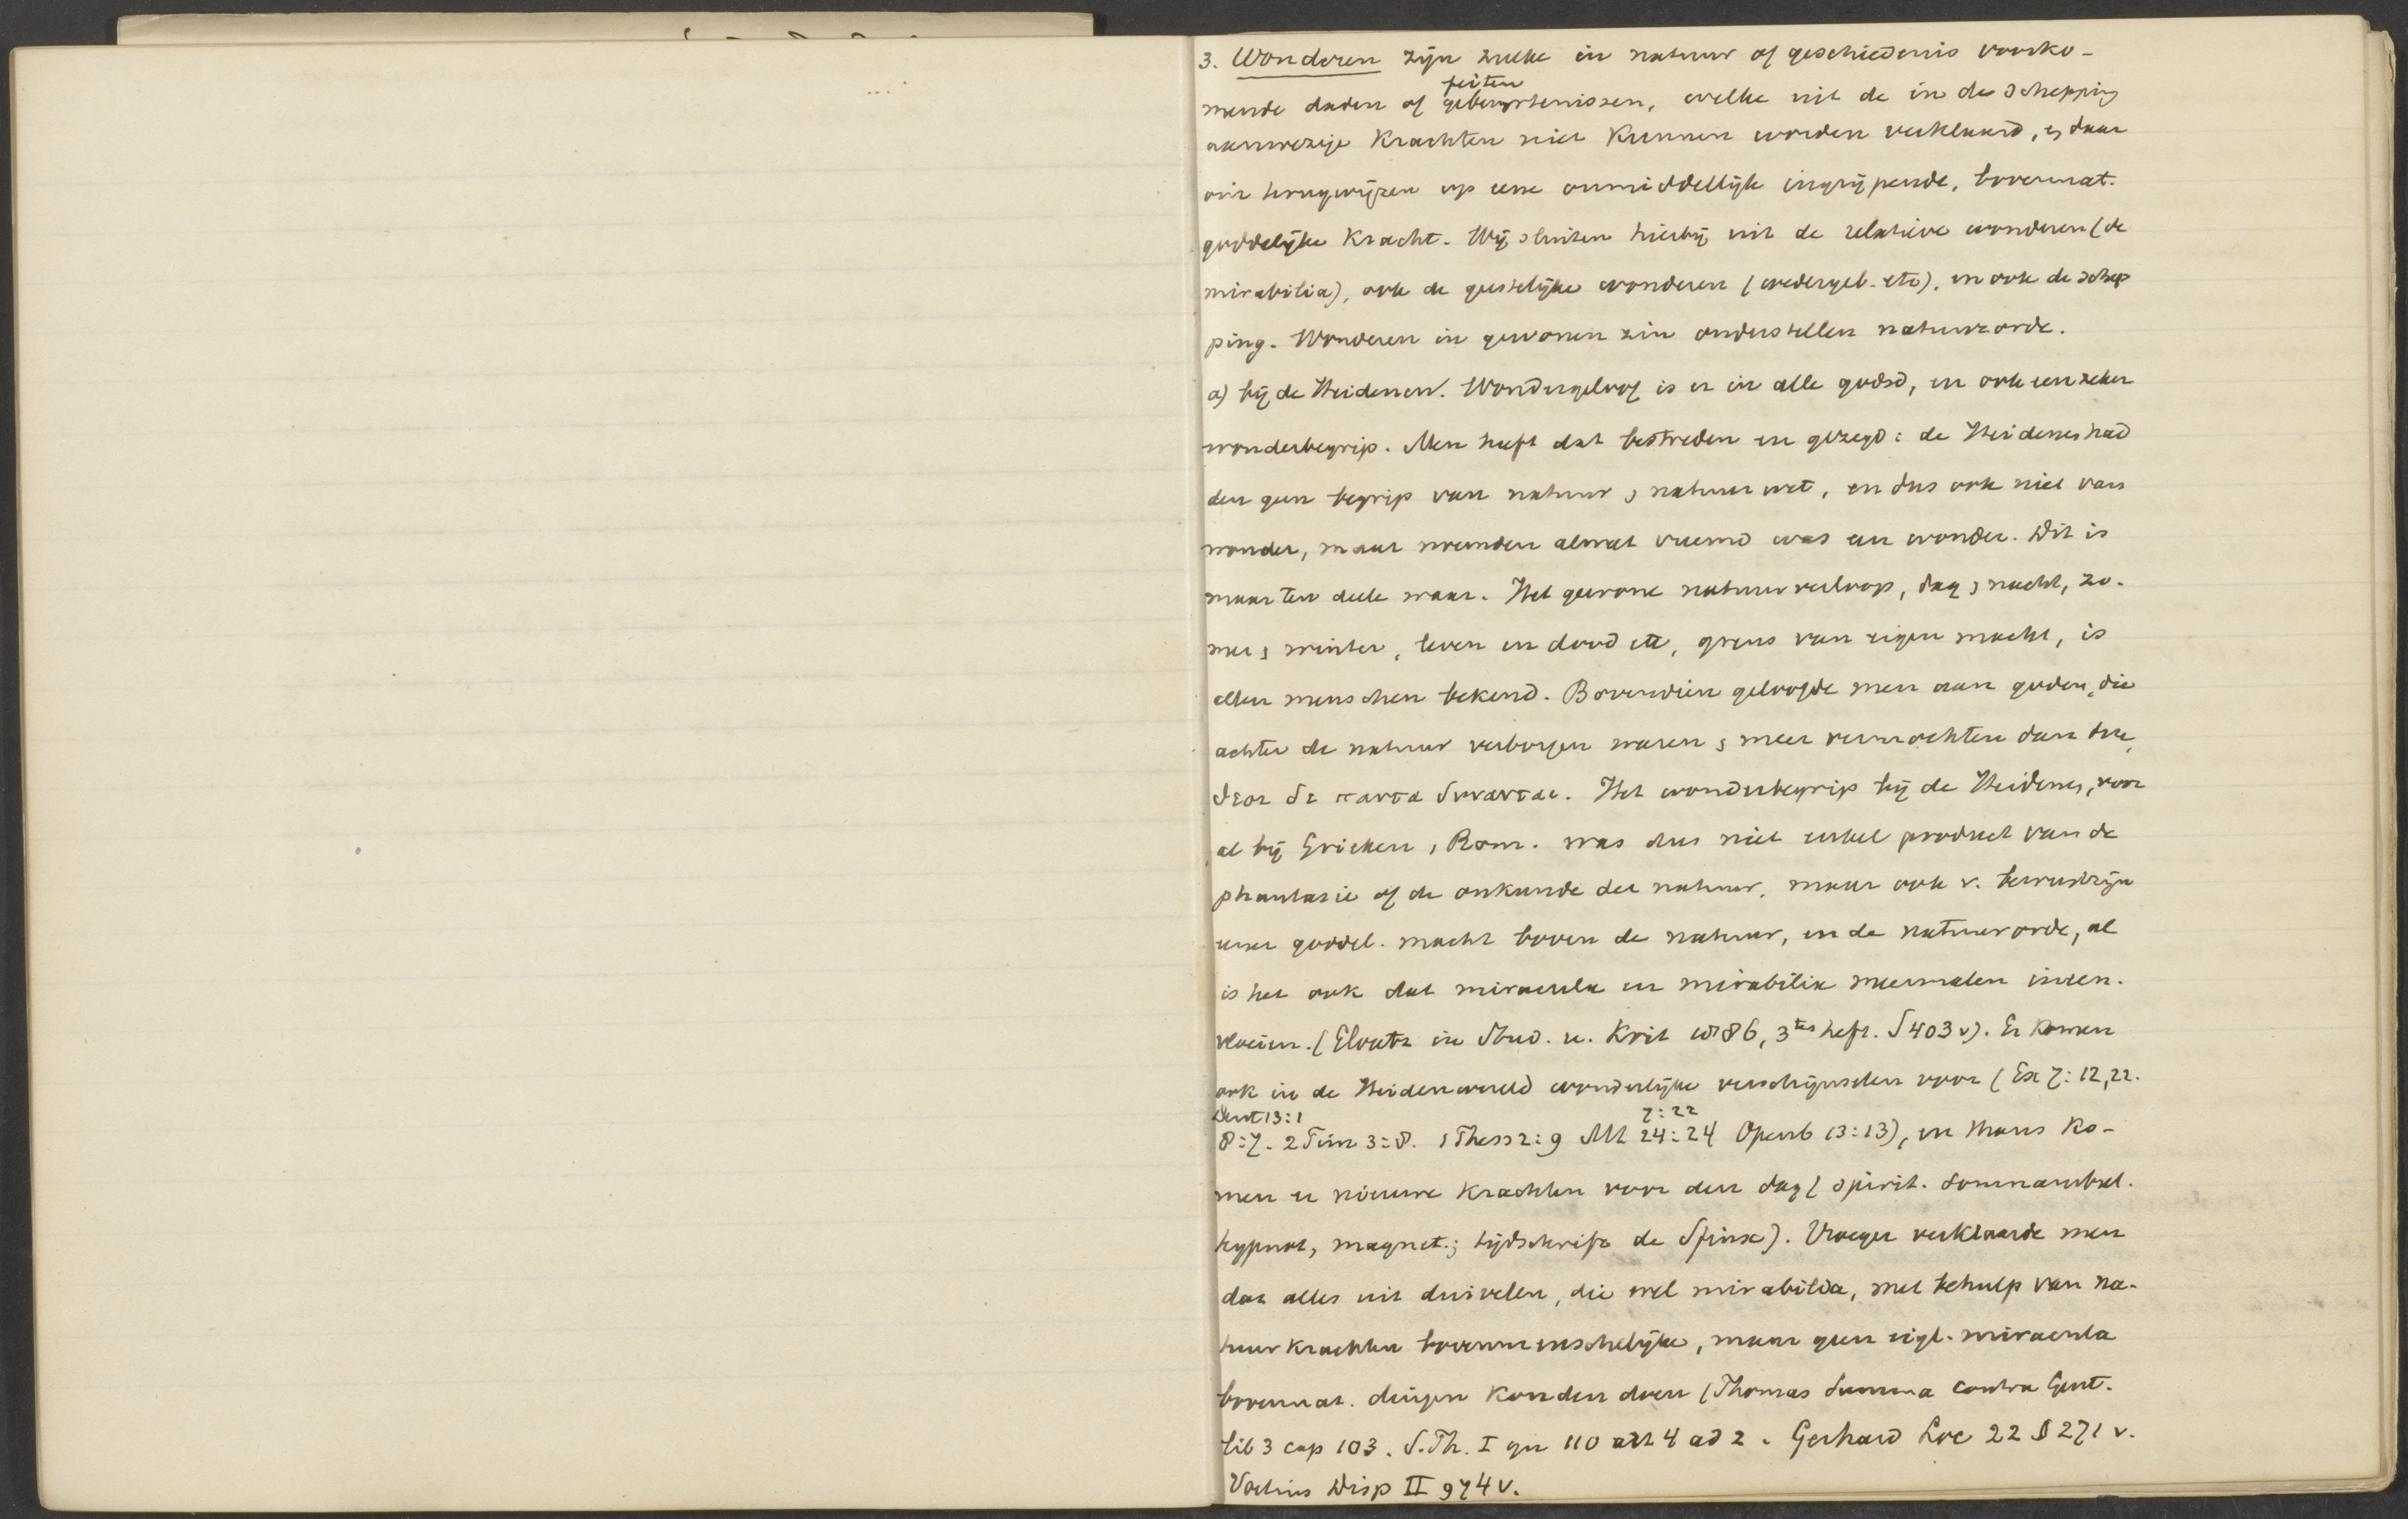 3. Wonderen zijn zulke in natuur of geschiedenis voorko-
feiten
mende daden of gebeurtenissen, welke uit de in de schepping
aanwezige Krachten niet Kunnen worden verklaard, en daar
om terugwijzen op eene onmiddellijk ingrijpende, bovennat.
goddelijke Kracht. Wij sluiten hierbij uit de relatieve wonderen (de
mirabilia), ook de geestelijke wonderen (wedergeb. etc), en ook de schep
ping. Wonderen in gewonen zin onderstellen natuurorde.
a) bij de Heidenen. Wondergeloof is er in alle godsd, en ook een zeker
wonderbegrip. Men heeft dat bestreden en gezegd: de Heidenen had
den geen begrip van natuur en natuurwet, en dus ook niet van
wonder, maar noemden alwat vreemd was een wonder. Dit is
maar ten deele waar. Het gewone natuurverloop, dag en nacht, zo-
mer en winter, leven en dood etc, grens van eigen macht, is
allen menschen bekend. Bovendien geloofde men aan goden, die
achter de natuur verborgen waren en meer vermochten dan hij,
θεοι δε παντα δυνανται. Het wonderbegrip bij de Heidenen, voor
al bij Grieken, Rom. was dus niet enkel product van de
phantasie of de onkunde der natuur, maar ook v. bewustzijn
eener goddel. macht boven de natuur, en de natuurorde, al
is het ook dat miracula en mirabilia meermalen ineen-
vloeien. (in Stud. u. Krit 1886, 3tes heft. S 403 v). Er Komen
ook in de Heidenwereld wonderlijke verschijnselen voor (Ex 7:12, 22.
Deut 13:1 7:22
8:7. 2 Tim 3:8. 2 Thess 2:9 Mt 24:24 Openb 13:13), en thans Ko-
men er nieuwe Krachten voor den dag (spirit. somnambul.
hypnot, magnet.; tijdschrift de Sfinx). Vroeger verklaarde men
dat alles uit duivelen, die wel mirabilia, met behulp van na-
tuurkrachten bovenmenschelijke, maar geen eigl. miracula
bovennat. dingen Konden doen (Thomas Summa contra Gent.
lib 3 cap 103. S. Th. I qu 110 art 4 ad 2. Gerhard Loc 22 § 271 v.
Voetius Disp II 974 v.